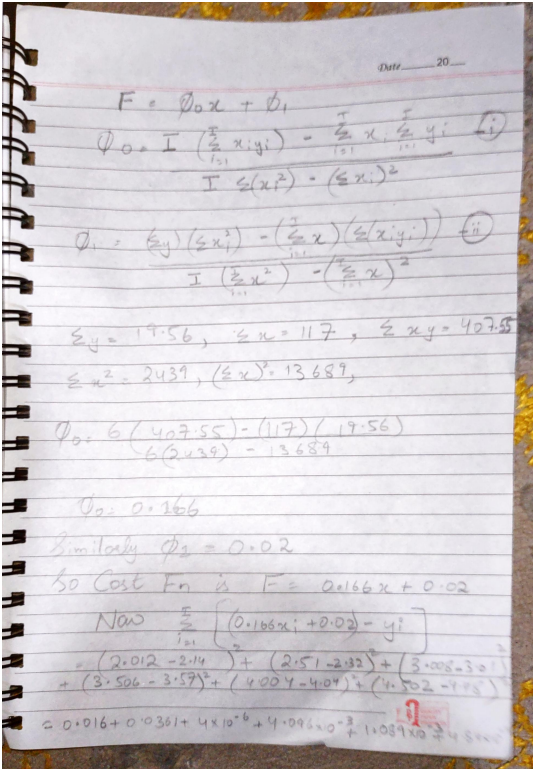 Date_____20___
F = ϕ0x + ϕ1
ϕ0 = I (Σ xiyi) - Σ xi Σ yi - i
I Σ(xi²) - (Σxi)²
ϕ1 = (Σy)(Σxi²) - (Σ x)(Σ(xiyi)) - ii
I (Σ x²) - (Σ x)²
Σy = 19.56, Σx = 117, Σxy = 407.55
Σx² = 2439, (Σx)² = 13689,
ϕ0 = 6(407.55) - (117)(19.56)
6(2439) - 13689
ϕ0 = 0.166
Similarly ϕ1 = 0.02
So Cost Fn is F = 0.166x + 0.02
Now Σ [(0.166xi + 0.02) - yi]²
= (2.012 - 2.14)² + (2.51 - 2.32)² + (3.008 - 3.01)²
+ (3.506 - 3.57)² + (4.004 - 4.04)² + (4.502 -
= 0.016 + 0.0361 + 4×10⁻⁶ + 4.096×10⁻³ +